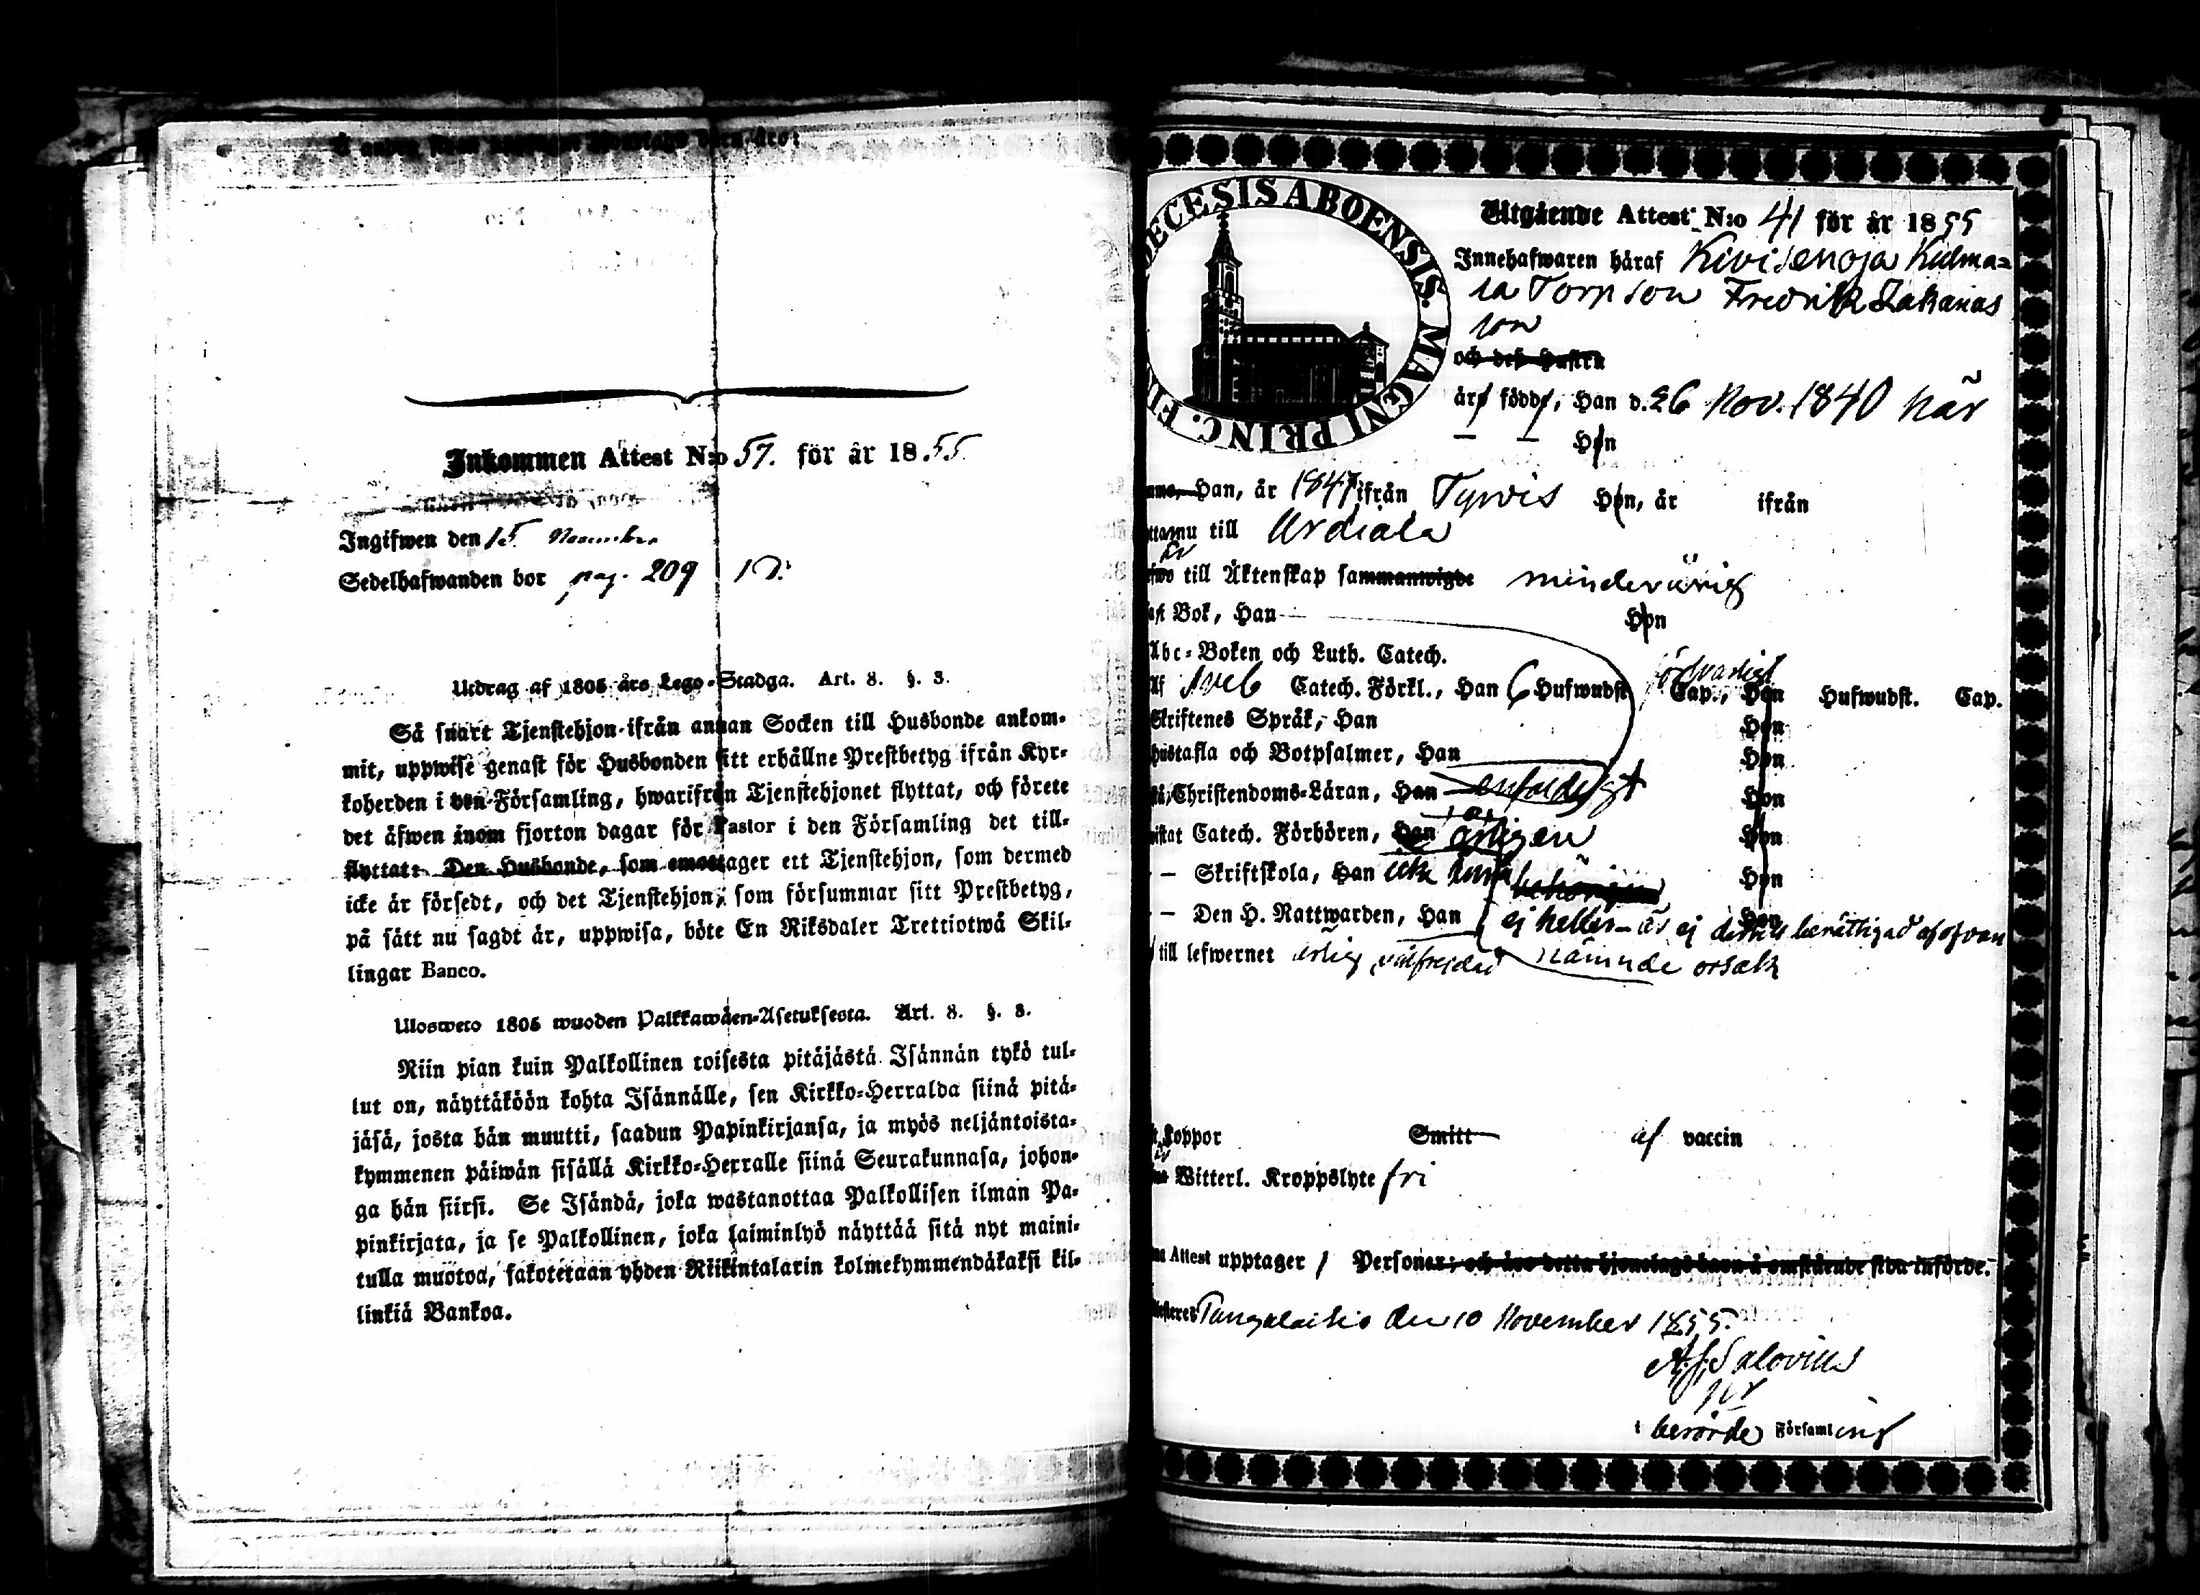 Inkommen Attest N:o 57. för år 1855
Ingifwen den 15 November
Sedelhafwanden bor pag. 209
Utdrag af 1805 års Lego-Stadga. Art. 8. §. 3.
Så snart Tjenstehjon ifrån annan Socken till Husbonde ankom-
mit, uppwise genast för Husbonden sitt erhållne Prestbetyg ifrån Kyr-
koherden i den Församling, hwarifrån Tjenstehjonet flyttat, och förete
det äfwen inom fjorton dagar för Pastor i den Församling det till-
flyttat: Den Husbonde, som emottager ett Tjenstehjon, som dermed
icke är försedt, och det Tjenstehjon, som försummar sitt Prestbetyg,
på sätt nu sagdt är, uppwisa, böte En Riksdaler Trettiotwå Skil-
lingar Banco.
Ulosweto 1805 wuoden Palkkawäen-Asetuksesta. Art. 8. §. 3.
Niin pian kuin Palkollinen toisesta pitäjästä Isännän tykö tul-
lut on, näyttäköön kohta Isännälle, sen Kirkko-Herralda siinä pitä-
jäsä, josta hän muutti, saadun Papinkirjansa, ja myös neljäntoista-
kymmenen päiwän sisällä Kirkko-Herralle siinä Seurakunnasa, johon-
ga hän siirsi. Se Isändä, joka wastanottaa Palkollisen ilman Pa-
pinkirjata, ja se Palkollinen, joka laiminlyö näyttää sitä nyt maini-
tulla muotoa, sakotetaan yhden Riikintalarin kolmekymmendäkaksi kil-
linkiä Bankoa.
ECESIS ABOENSIS. MAGNI PRINC. FI
Utgående Attest N:o 41 för år 1855
Innehafwaren häraf Kivisenoja Kulma-
la Torpson Fredrik Zakarias
son
och deß Hustru
äro födde, Han d. 26 Nov. 1840 här
Hon
Han, år 1847 ifrån Tyrvis Hon, år ifrån
nu till Urdiala
till Äktenskap sammanwigde minderårig
Bok, Han Hon
Abc-Boken och Luth. Catech.
Af Sveb Catech. Förkl., Han 6 Hufwudst Cap., Hon Hufwudst. Cap.
Skriftenes Språk, Han Hon
hustafla och Botpsalmer, Han Hon
Christendoms-Läran, Han enfaldigt Hon
Catech. Förhören, Han årligen Hon
— Skriftskola, Han Hon
— Den H. Nattwarden, Han ej heller - är ej dertill berättigad af ofvan
till lefwernet ärlig välfrejdad nämnde orsak
Koppor Smitt af vaccin
Witterl. Kroppslyte fri
Attest upptager 1 Personer; och äro detta hjonelags barn å omstående sida införde.
Pungalaitio den 10 November 1855.
A. J. Salovius
i berörde Församling